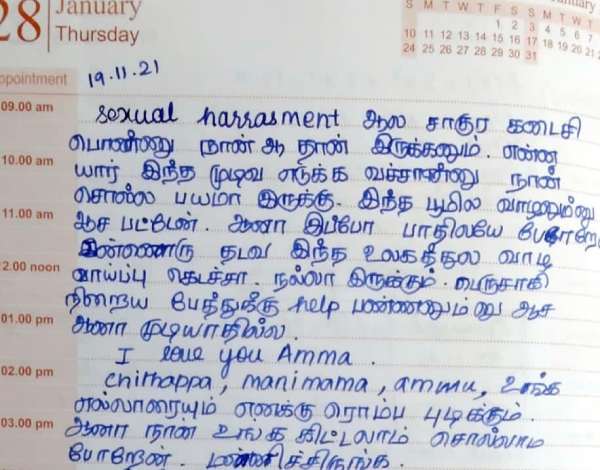 28 January
Thursday
January
S M T W T F S
1 2 3
10 11 12 13 14 15 16 17
24 25 26 27 28 29 30 31
ppointment 19.11.21
09.00 am
sexual harrasment ஆல சாகுர கடைசி
பொண்ணு நான் ஆ தான் இருக்கனும். என்ன
10.00 am
யார் இந்த முடிவ எடுக்க வச்சான்னு நான்
சொல்ல பயமா இருக்கு. இந்த பூமில வாழனும்னு
11.00 am
ஆச பட்டேன். ஆனா இப்போ பாதிலயே
இன்னொரு தடவ இந்த உலகத்துல வாழ
2.00 noon
வாய்ப்பு கெடச்சா. நல்லா இருக்கும். பெருசாகி
நிறைய பேத்துக்கு help பண்ணனும்னு ஆச
01.00 pm
ஆனா முடியாதில்ல.
I love you Amma.
02.00 pm
chithappa, manimama, ammu, உங்க
எல்லாரையும் எனக்கு ரொம்ப புடிக்கும்.
03.00 pm
ஆனா நான் உங்க கிட்டலாம் சொல்லாம
போறேன். மன்னிச்சிருங்க.